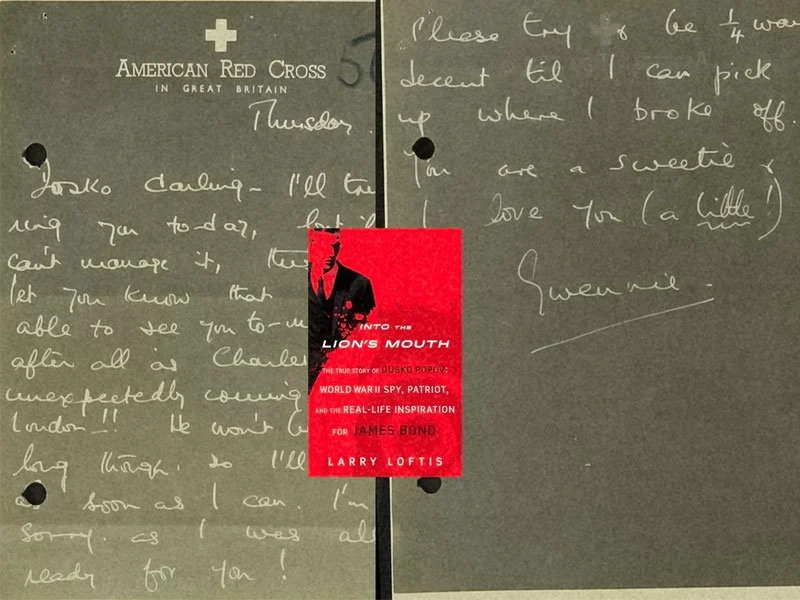 AMERICAN RED CROSS
IN GREAT BRITAIN
Thursday.
Dusko Darling – I'll
ring you to-day,
can't manage it,
let you know that
able to see you
after all as Charles
unexpectedly coming
London!! He won't
long though, so I'll
as soon as I can. I'm
sorry. as I was all
ready for you!
Please try & be 1/4 way
decent til I can pick
up where I broke off.
You are a sweetie &
I love you (a little!)
Gwennie.
INTO THE
LION'S MOUTH
THE TRUE STORY OF DUSKO POPOV:
WORLD WAR II SPY, PATRIOT,
AND THE REAL-LIFE INSPIRATION
FOR JAMES BOND
LARRY LOFTIS